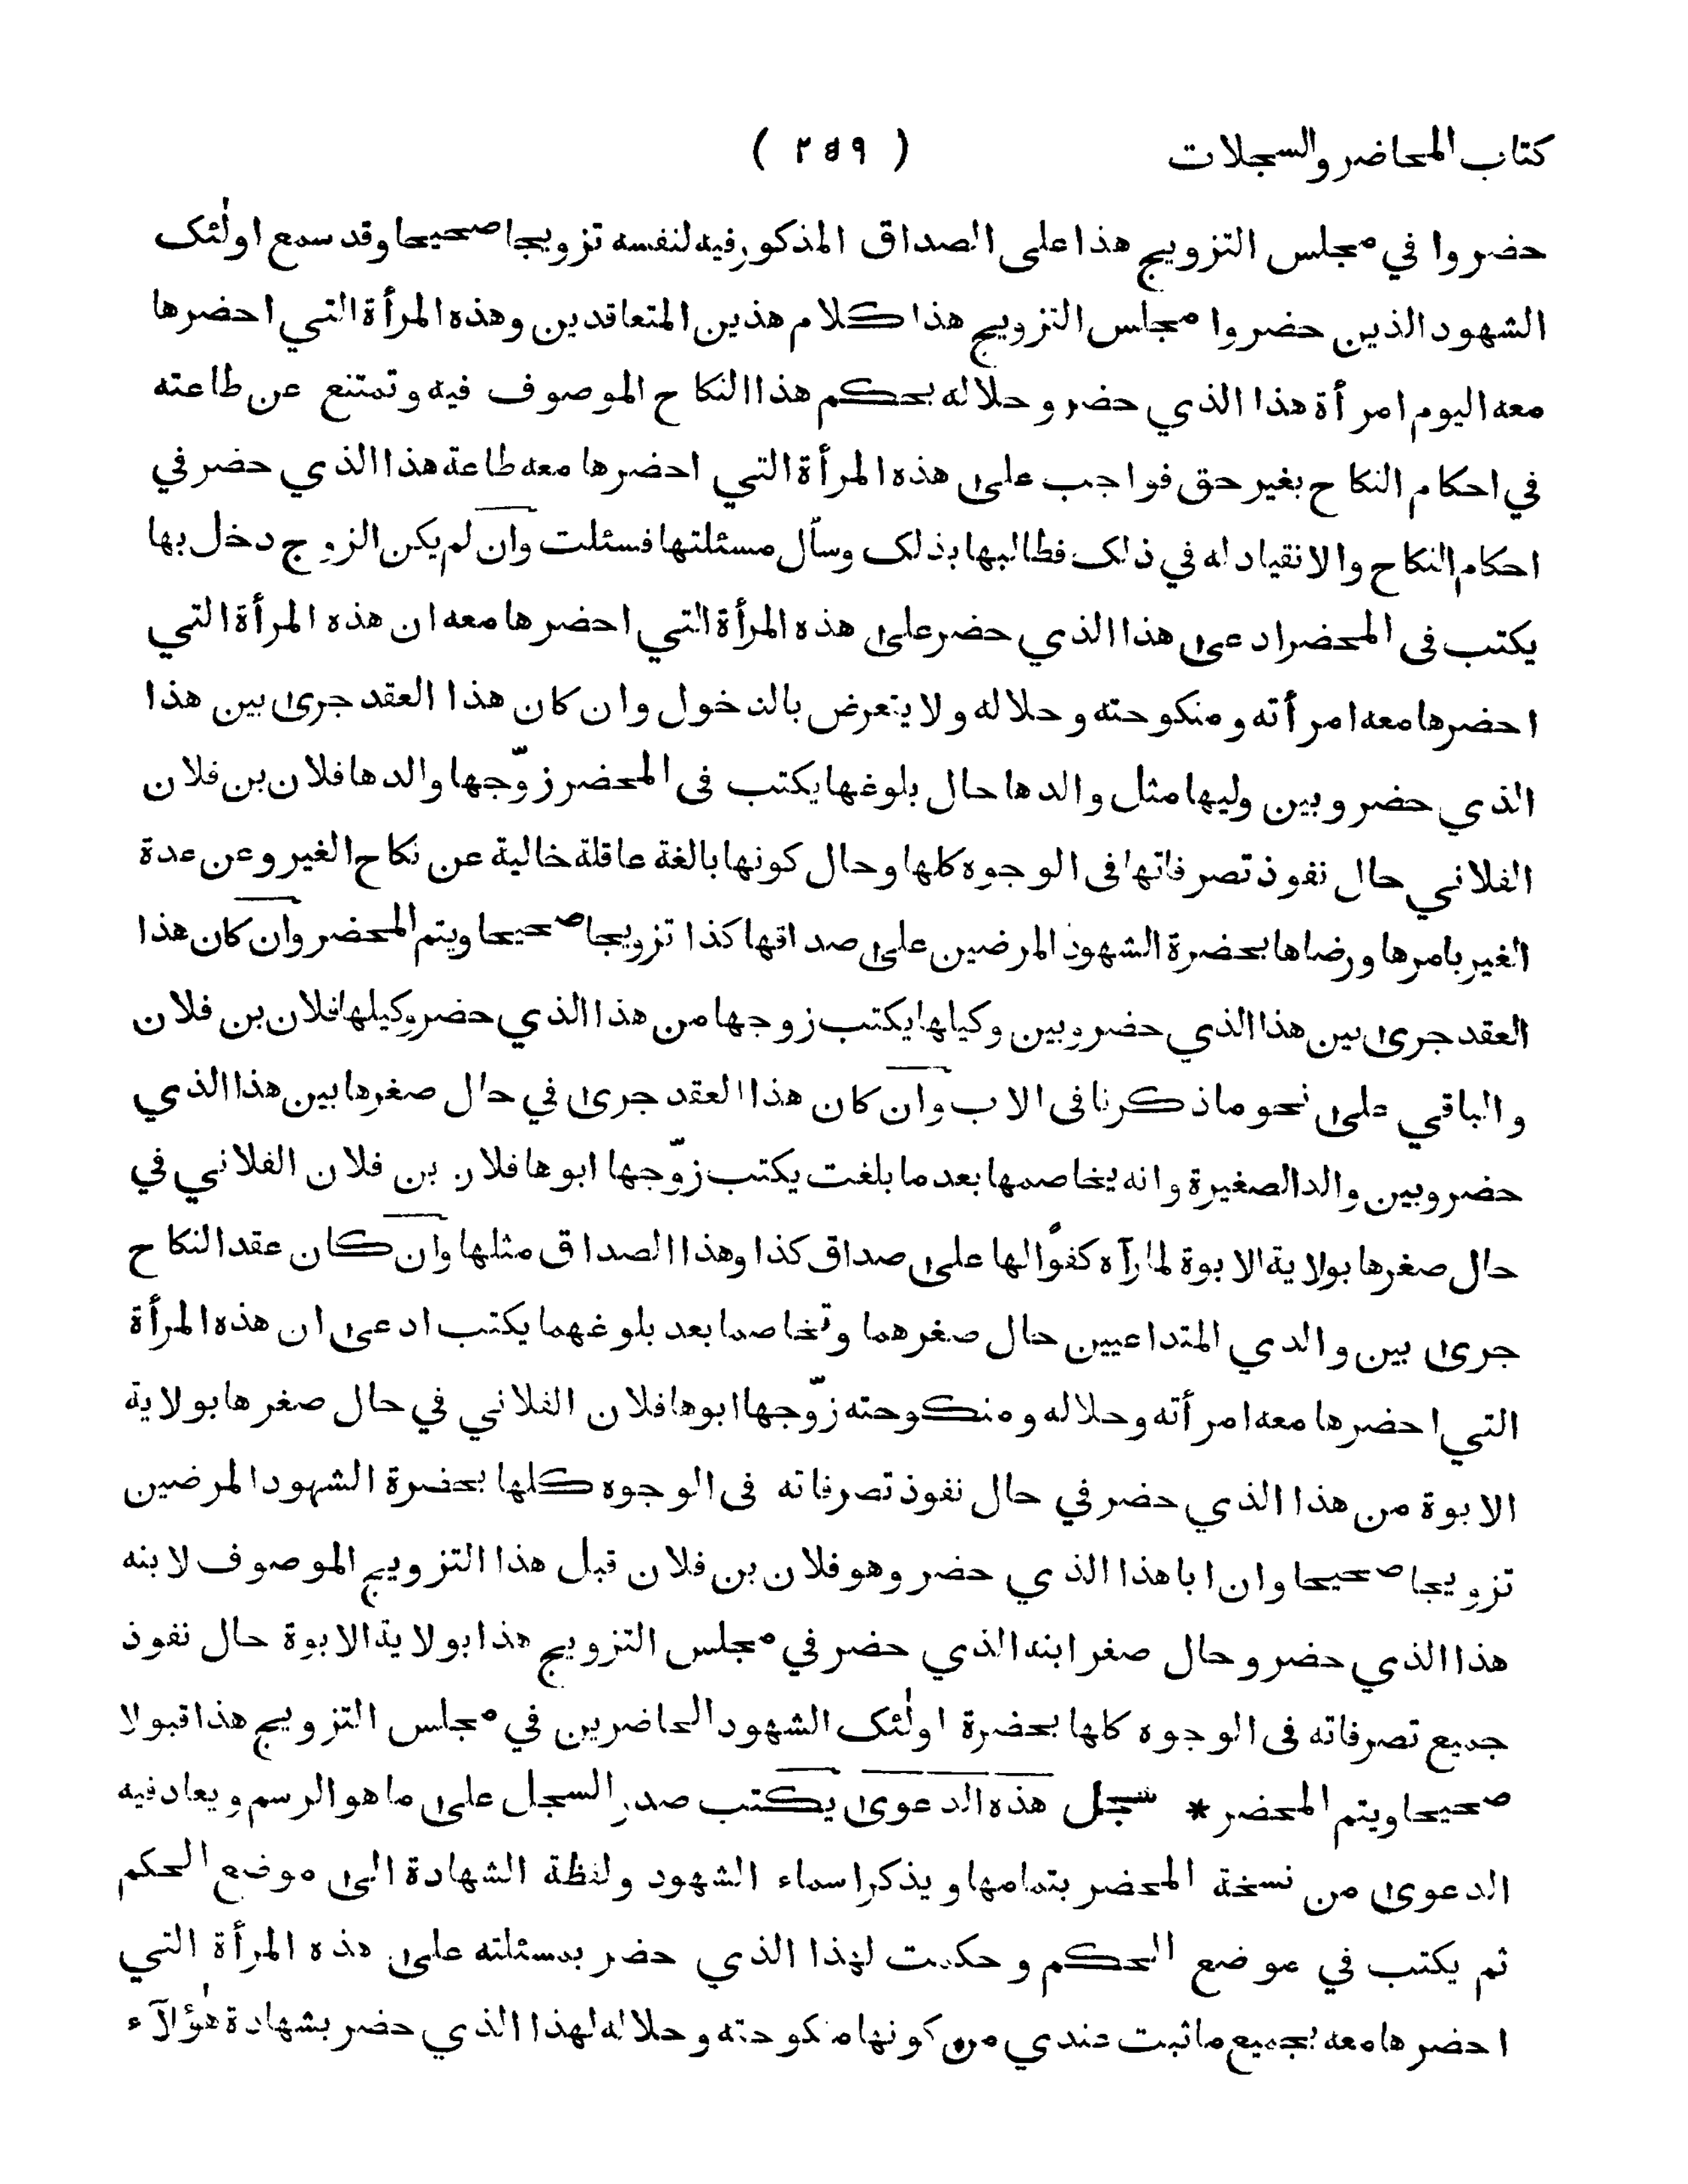 كتاب المحاضر والسجلات ( ٢٥٩ )
حضروا في مجلس التزويج هذا على الصداق المذكور فيه لنفسه تزويجا صحيحا وقد سمع اولٰئك
الشهود الذين حضروا مجلس التزويج هذا كلام هذين المتعاقدين وهذه المرأة التي احضرها
معه اليوم امرأة هذا الذي حضر وحلاله بحكم هذا النكاح الموصوف فيه وتمتنع عن طاعته
في احكام النكاح بغير حق فواجب على هذه المرأة التي احضرها معه طاعة هذا الذي حضر في
احكام النكاح والانقياد له في ذلك فطالبها بذلك وسأل مسئلتها فسئلت وان لم يكن الزوج دخل بها
يكتب في المحضر ادعى هذا الذي حضر على هذه المرأة التي احضرها معه ان هذه المرأة التي
احضرها معه امرأته ومنكوحته وحلاله ولا يتعرض بالدخول وان كان هذا العقد جرى بين هذا
الذي حضر وبين وليها مثل والدها حال بلوغها يكتب في المحضر زوّجها والدها فلان بن فلان
الفلاني حال نفوذ تصرفاتها في الوجوه كلها وحال كونها بالغة عاقلة خالية عن نكاح الغير وعن عدة
الغير بامرها ورضاها بحضرة الشهود المرضين على صداقها كذا تزويجا صحيحا ويتم المحضر وان كان هذا
العقد جرى بين هذا الذي حضر وبين وكيلها يكتب زوجها من هذا الذي حضر وكيلها فلان بن فلان
والباقي على نحو ما ذكرنا في الاب وان كان هذا العقد جرى في حال صغرها بين هذا الذي
حضر وبين والد الصغيرة وانه يخاصمها بعد ما بلغت يكتب زوّجها ابوها فلان بن فلان الفلاني في
حال صغرها بولاية الابوة لما رآه كفؤًا لها على صداق كذا وهذا الصداق مثلها وان كان عقد النكاح
جرى بين والدي المتداعيين حال صغرهما وتخاصما بعد بلوغهما يكتب ادعى ان هذه المرأة
التي احضرها معه امرأته وحلاله ومنكوحته زوّجها ابوها فلان الفلاني في حال صغرها بولاية
الابوة من هذا الذي حضر في حال نفوذ تصرفاته في الوجوه كلها بحضرة الشهود المرضين
تزويجا صحيحا وان ابا هذا الذي حضر وهو فلان بن فلان قبل هذا التزويج الموصوف لابنه
هذا الذي حضر وحال صغر ابنه الذي حضر في مجلس التزويج هذا بولاية الابوة حال نفوذ
جميع تصرفاته في الوجوه كلها بحضرة اولٰئك الشهود الحاضرين في مجلس التزويج هذا قبولا
صحيحا ويتم المحضر * سجل هذه الدعوى يكتب صدر السجل على ما هو الرسم ويعاد فيه
الدعوى من نسخة المحضر بتمامها ويذكر اسماء الشهود ولفظة الشهادة الى موضع الحكم
ثم يكتب في موضع الحكم وحكمت لهذا الذي حضر بمسئلته على هذه المرأة التي
احضرها معه بجميع ما ثبت عندي من كونها منكوحته وحلاله لهذا الذي حضر بشهادة هٰؤلآء